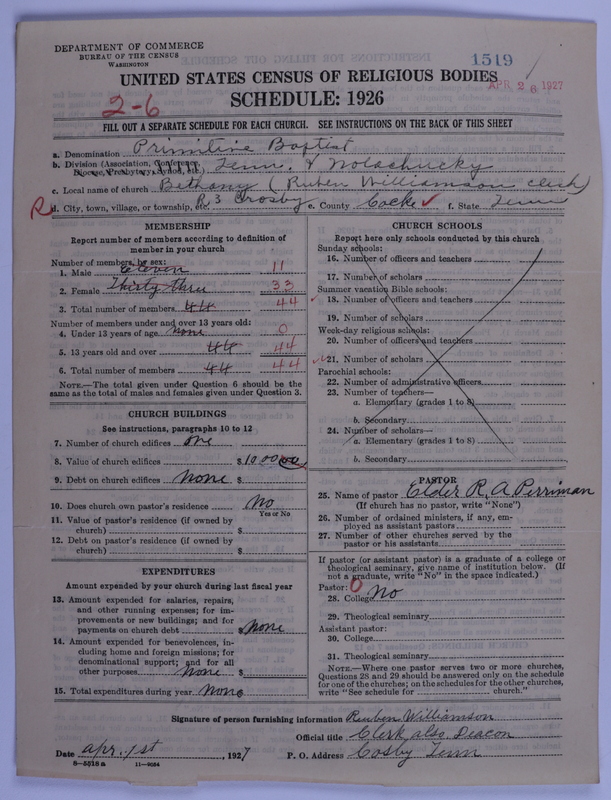 DEPARTMENT OF COMMERCE
BUREAU OF THE CENSUS
WASHINGTON
1519
APR 26 1927
UNITED STATES CENSUS OF RELIGIOUS BODIES
2-6
SCHEDULE: 1926
FILL OUT A SEPARATE SCHEDULE FOR EACH CHURCH. SEE INSTRUCTIONS ON THE BACK OF THIS SHEET
a. Denomination Primitive Baptist
b. Division (Association, Conference, Diocese, Presbytery, Synod, etc.) Tenn. & Nolachucky
c. Local name of church Bethany (Ruben Williamson clerk)
R d. City, town, village, or township, etc. R 3 Crosby e. County Cocke ✓ f. State Tenn
MEMBERSHIP
Report number of members according to definition of
member in your church
Number of members, by sex:
1. Male Eleven 11
2. Female Thirty thru 33
3. Total number of members 44 44
Number of members under and over 13 years old:
4. Under 13 years of age none 0
5. 13 years old and over 44 44
6. Total number of members 44 44
NOTE.—The total given under Question 6 should be the
same as the total of males and females given under Question 3.
CHURCH BUILDINGS
See instructions, paragraphs 10 to 12
7. Number of church edifices one
8. Value of church edifices $1000 00
9. Debt on church edifices None $
10. Does church own pastor's residence No
Yes or No
11. Value of pastor's residence (if owned by
church) $
12. Debt on pastor's residence (if owned by
church) $
EXPENDITURES
Amount expended by your church during last fiscal year
13. Amount expended for salaries, repairs,
and other running expenses; for im-
provements or new buildings; and for
payments on church debt $ None
14. Amount expended for benevolences, in-
cluding home and foreign missions; for
denominational support; and for all
other purposes None $
15. Total expenditures during year None
CHURCH SCHOOLS
Report here only schools conducted by this church
Sunday schools:
16. Number of officers and teachers
17. Number of scholars
Summer vacation Bible schools:
18. Number of officers and teachers
19. Number of scholars
Week-day religious schools:
20. Number of officers and teachers
21. Number of scholars
Parochial schools:
22. Number of administrative officers
23. Number of teachers—
a. Elementary (grades 1 to 8)
b. Secondary
24. Number of scholars—
a. Elementary (grades 1 to 8)
b. Secondary
PASTOR
25. Name of pastor Elder R. A Perriman
(If church has no pastor, write "None")
26. Number of ordained ministers, if any, em-
ployed as assistant pastors
27. Number of other churches served by the
pastor or his assistants
If pastor (or assistant pastor) is a graduate of a college or
theological seminary, give name of institution below. (If
not a graduate, write "No" in the space indicated.)
Pastor: 0
28. College No
29. Theological seminary
Assistant pastor:
30. College
31. Theological seminary
NOTE.—Where one pastor serves two or more churches,
Questions 28 and 29 should be answered only on the schedule
for one of the churches; on the schedules for the other churches,
write "See schedule for church."
Signature of person furnishing information Reuben Williamson
Official title Clerk also Deacon
Date Apr. 1st, 1927 P. O. Address Cosby Tenn
8-5518 a 11-9024